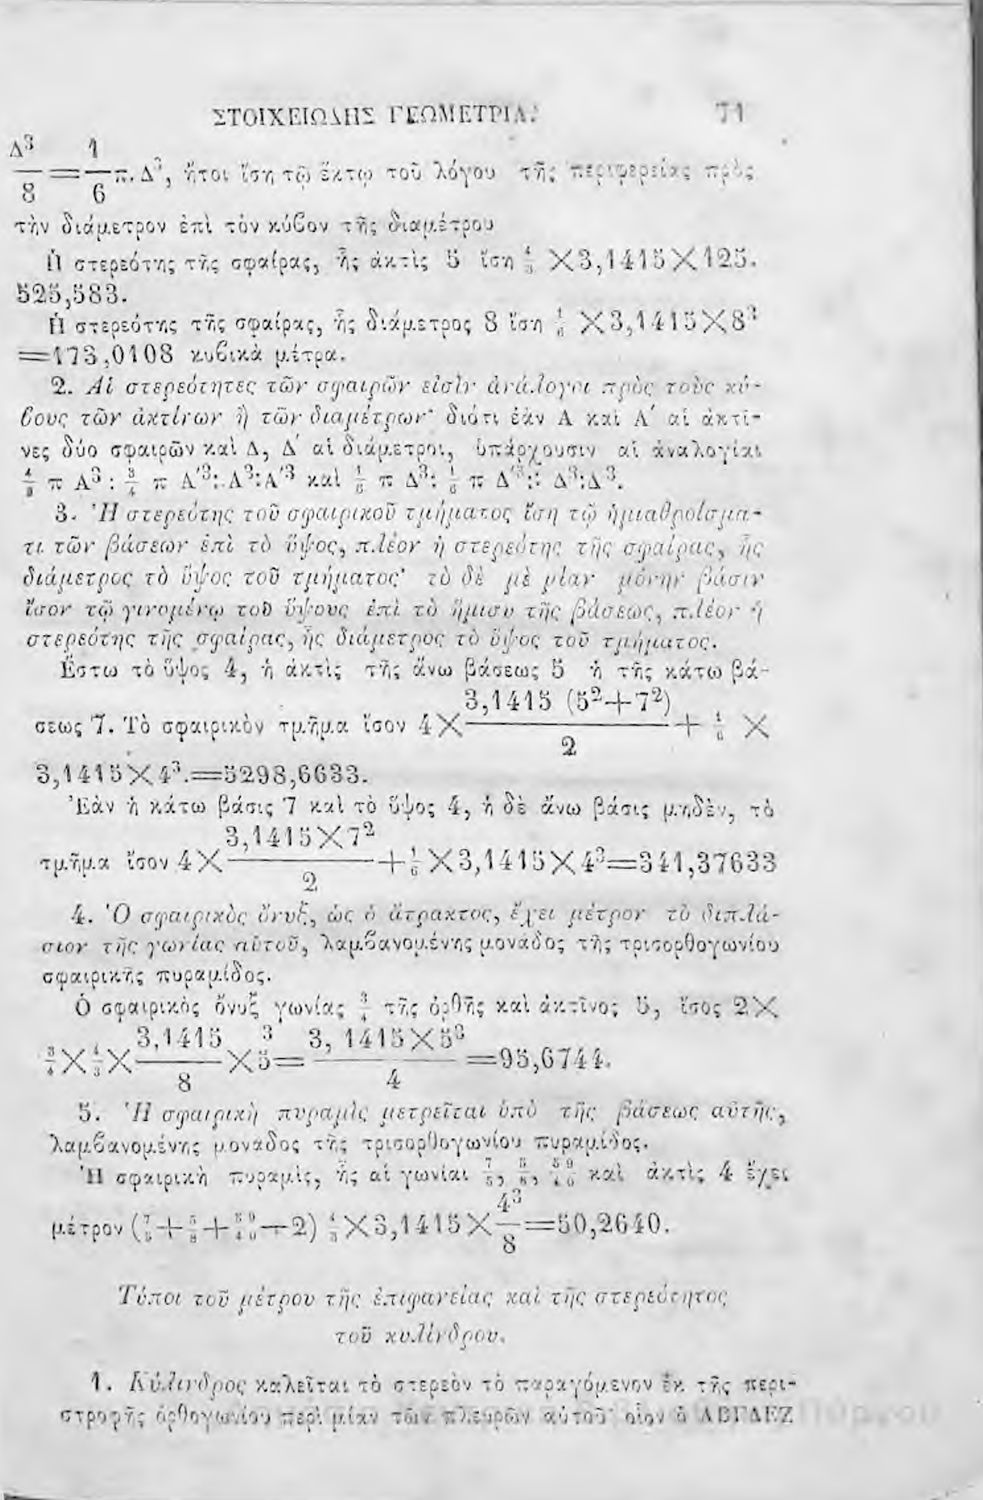 ΣΤΟΙΧΕΙΩΔΗΣ ΓΕΩΜΕΤΡΙΑ. 71
Δ³/8 = 1/6 π. Δ³, ἤτοι ἴση τῷ ἕκτῳ τοῦ λόγου τῆς περιφερείας πρὸς
τὴν διάμετρον ἐπὶ τὸν κύβον τῆς διαμέτρου
Ἡ στερεότης τῆς σφαίρας, ἧς ἀκτὶς 5 ἴση 4/3 ✕3,1415✕125.
525,583.
Ἡ στερεότης τῆς σφαίρας, ἧς διάμετρος 8 ἴση 1/6 ✕3,1415✕8³
=173,0108 κυβικὰ μέτρα.
2. Αἱ στερεότητες τῶν σφαιρῶν εἰσὶν ἀνάλογοι πρὸς τοὺς κύ-
βους τῶν ἀκτίνων ἢ τῶν διαμέτρων· διότι ἐὰν Α καὶ Α′ αἱ ἀκτί-
νες δύο σφαιρῶν καὶ Δ, Δ′ αἱ διάμετροι, ὑπάρχουσιν αἱ ἀναλογίαι
4/3 π Α³ : 3/4 π Α′³:.Α³:Α′³ καὶ 1/6 π Δ³: 1/6 π Δ′³:: Δ³:Δ³.
3. Ἡ στερεότης τοῦ σφαιρικοῦ τμήματος ἴση τῷ ἡμιαθροίσμα-
τι τῶν βάσεων ἐπὶ τὸ ὕψος, πλέον ἡ στερεότης τῆς σφαίρας, ἧς
διάμετρος τὸ ὕψος τοῦ τμήματος· τὸ δὲ μὲ μίαν μόνην βάσιν
ἴσον τῷ γινομένῳ τοῦ ὕψους ἐπὶ τὸ ἥμισυ τῆς βάσεως, πλέον ἡ
στερεότης τῆς σφαίρας, ἧς διάμετρος τὸ ὕψος τοῦ τμήματος.
Ἔστω τὸ ὕψος 4, ἡ ἀκτὶς τῆς ἄνω βάσεως 5 ἡ τῆς κάτω βά-
σεως 7. Τὸ σφαιρικὸν τμῆμα ἴσον 4✕ 3,1415 (5²+7²)/2 + 1/6 ✕
3,1415✕4³.=5298,6633.
Ἐὰν ἡ κάτω βάσις 7 καὶ τὸ ὕψος 4, ἡ δὲ ἄνω βάσις μηδὲν, τὸ
τμῆμα ἴσον 4✕ 3,1415✕7²/2 + 1/6 ✕3,1415✕4³=341,37633
4. Ὁ σφαιρικὸς ὄνυξ, ὡς ὁ ἄτρακτος, ἔχει μέτρον τὸ διπλά-
σιον τῆς γωνίας αὐτοῦ, λαμβανομένης μονάδος τῆς τρισορθογωνίου
σφαιρικῆς πυραμίδος.
Ὁ σφαιρικὸς ὄνυξ γωνίας 3/4 τῆς ὀρθῆς καὶ ἀκτῖνος 5, ἴσος 2✕
3/4 ✕ 4/3 ✕ 3,1415/8 ✕5³= 3, 1415✕5³/4 =95,6744.
5. Ἡ σφαιρικὴ πυραμὶς μετρεῖται ὑπὸ τῆς βάσεως αὐτῆς,
λαμβανομένης μονάδος τῆς τρισορθογωνίου πυραμίδος.
Ἡ σφαιρικὴ πυραμὶς, ἧς αἱ γωνίαι 7/5, 5/8, 59/40 καὶ ἀκτὶς 4 ἔχει
μέτρον (7/5 + 5/8 + 59/40 —2) 4/3 ✕3,1415✕ 4³/8 =50,2640.
Τύποι τοῦ μέτρου τῆς ἐπιφανείας καὶ τῆς στερεότητος
τοῦ κυλίνδρου.
1. Κύλινδρος καλεῖται τὸ στερεὸν τὸ παραγόμενον ἐκ τῆς περι-
στροφῆς ὀρθογωνίου περὶ μίαν τῶν πλευρῶν αὐτοῦ· οἷον ὁ ΑΒΓΔΕΖ